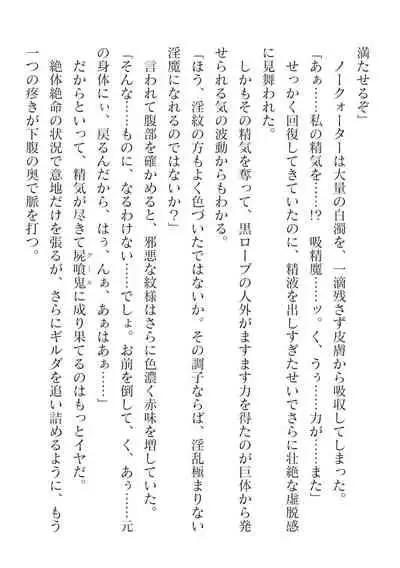 満たせるぞ」
　ノークォーターは大量の白濁を、一滴残さず皮膚から吸収してしまった。
「あぁ……私の精気を……!?　吸精魔……ッ。く、うぅ……力が……また」
　せっかく回復してきていたのに、精液を出しすぎたせいでさらに壮絶な虚脱感
に見舞われた。
　しかもその精気を奪って、黒ローブの人外がますます力を得たのが巨体から発
せられる気の波動からもわかる。
「ほう、淫紋の方もよく色づいたではないか。その調子ならば、淫乱極まりない
淫魔になれるのではないか？」
　言われて腹部を確かめると、邪悪な紋様はさらに色濃く赤味を増していた。
「そんな……ものに、なるわけない……でしょ。お前を倒して、く、あぅ……元
の身体にぃ、戻るんだから、はぅ、んぁ、あぁはあぁ……」
　だからといって、精気が尽きて屍喰鬼グールに成り果てるのはもっとイヤだ。
　絶体絶命の状況で意地だけを張るが、さらにギルダを追い詰めるように、もう
一つの疼きが下腹の奥で脈を打つ。